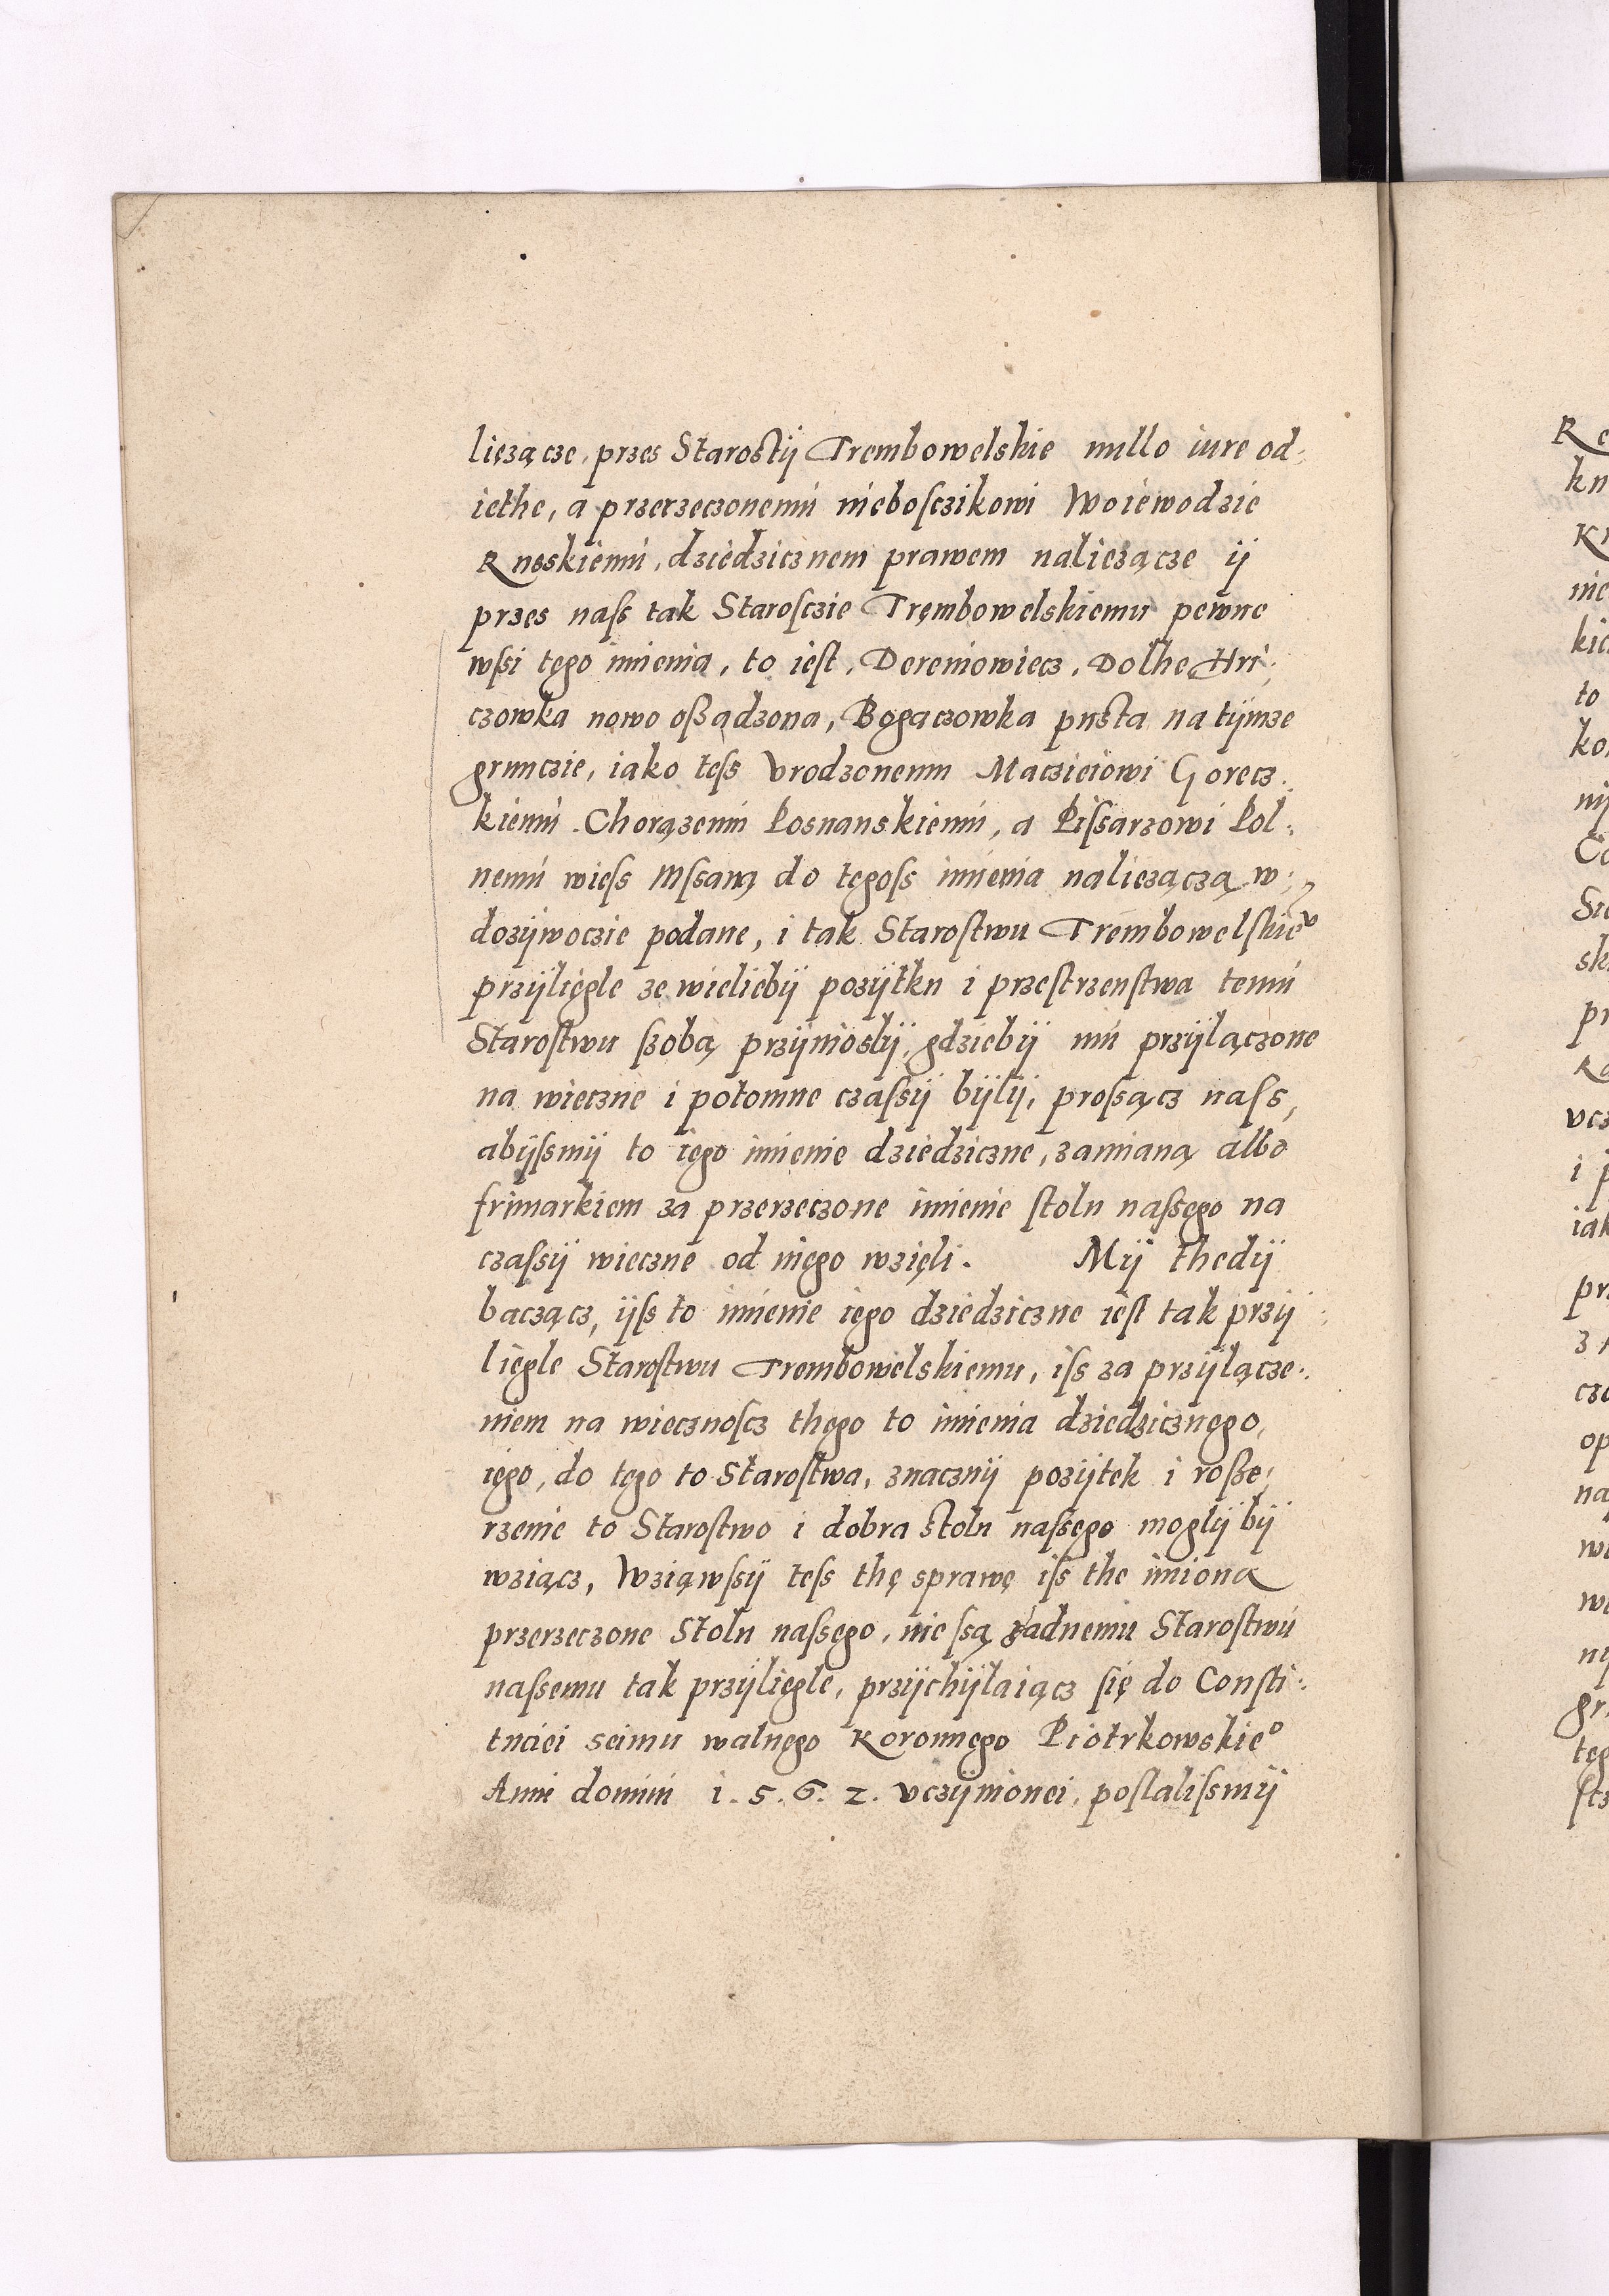 lieząc​ze, przes Starostÿ Trembowelskie nullo iure od-
iethe, a przerzeczonemu niebosczikowi Woiewodzie
Rueskiemu, dziedzicznem prawem naliezącze ÿ
przes naſs tak Staroſczie Trembowelskiemu pewne
wſsi tego imienia, to ieſt, Dereniowiecz, Dolhe Hri-
czowka nowo oſsądzona, Bogaczowka pusta na tÿmze
grunczie, iako teſs Vrodzonemu Maczieiowi Gorecz-
kiemu Chorązemu Posnanskiemu, a Piſsarzowi Pol-
nemu wieſs Mſsaną do tegoſs imienia naliezączą w-
dozÿwoczie podane, i tak Staroſtwu Trembowelſkieᵛ
przÿliegle ze wieliebÿ pozÿtku i przeſtrzenſtwa temu
Staroſtwu ſzobą przÿnioslÿ, gdziebÿ mu przÿlączone
na wieczne i potomne czaſsÿ bÿlÿ, proſsącz naſs,
abÿſsmÿ to iego imienie dziedziczne, zamianą albo
frimarkiem za przerzeczone imienie ſtolu naſsego na
czaſsÿ wieczne od niego wzięli. Mÿ thedÿ
baczącz, ÿſs to imienie iego dziedziczne ieſt tak przÿ-
liegle Staroſtwu Trembowelskiemu, iſs za przÿlącze-
niem na wiecznoſcz thego to imienia dziedzicznego,
iego, do tego to Staroſtwa, znacznÿ pozÿtek i roſse-
rzenie to Staroſtwo i dobra Stolu naſsego moglÿ bÿ
wziącz, Wziąwſsÿ teſs thę sprawę iſs the imiona
przerzeczone Stolu naſsego, nie ſsą żadnemu Staroſtwu
naſsemu tak przÿliegle, przÿchÿlaiącz ſię do Conſti-
tuciei seimu walnego Koronnego Piotrkowskieᵒ
Anni domini 1. 5. 6. 2. vczÿnionei, poſlaliſsmÿ